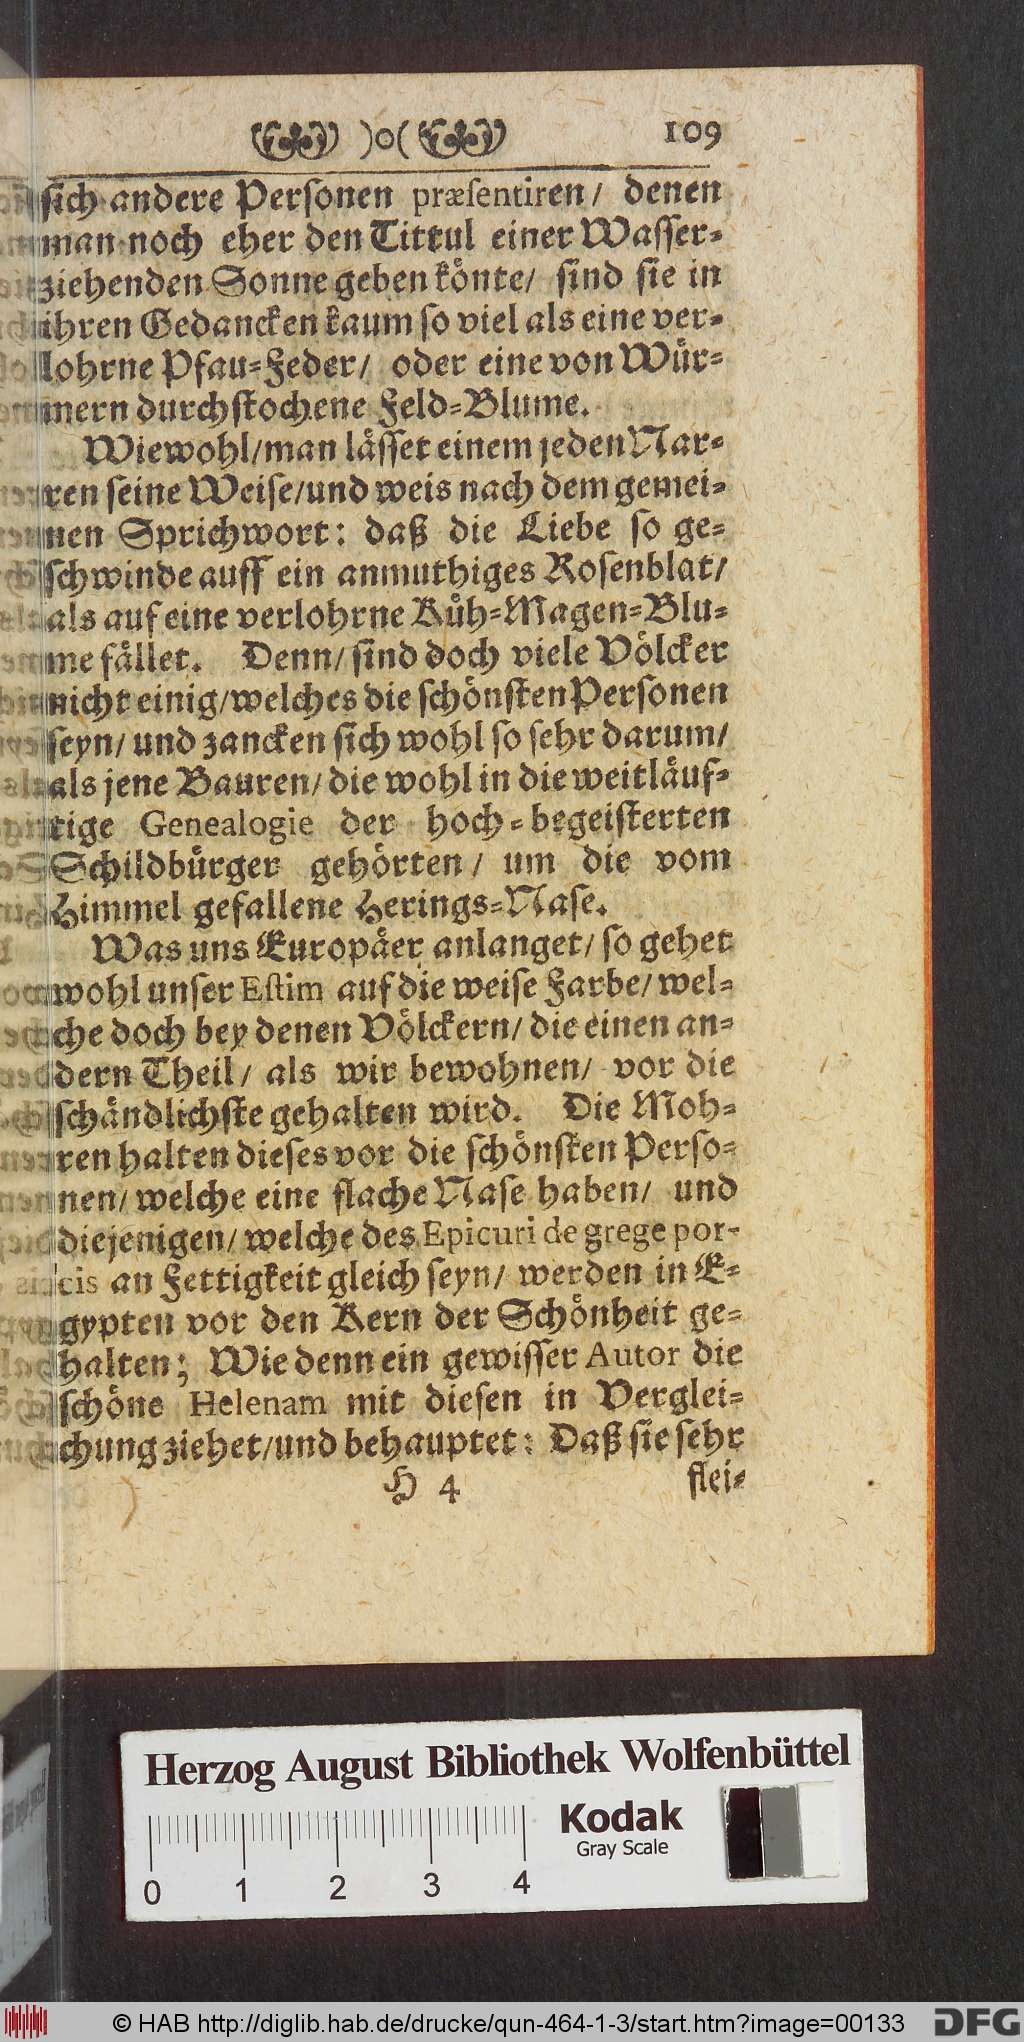 )o( 109
sich andere Personen præsentiren/ denen
man noch eher den Tittul einer Wasser-
ziehenden Sonne geben könte/ sind sie in
ihren Gedancken kaum so viel als eine ver-
lohrne Pfau-Feder/ oder eine von Wür-
mern durchstochene Feld-Blume.
Wiewohl/man lässet einem jeden Nar-
ren seine Weise/und weis nach dem gemei-
nen Sprichwort: daß die Liebe so ge-
schwinde auff ein anmuthiges Rosenblat/
als auf eine verlohrne Küh-Magen-Blu-
me fället. Denn/ sind doch viele Völcker
nicht einig/welches die schönsten Personen
seyn/ und zancken sich wohl so sehr darum/
als jene Bauren/ die wohl in die weitläuf-
tige Genealogie der hoch-begeisterten
Schildbürger gehörten/ um die vom
Himmel gefallene Herings-Nase.
Was uns Europäer anlanget/ so gehet
wohl unser Estim auf die weise Farbe/ wel-
che doch bey denen Völckern/ die einen an-
dern Theil/ als wir bewohnen/ vor die
schändlichste gehalten wird. Die Moh-
ren halten dieses vor die schönsten Perso-
nen/ welche eine flache Nase haben/ und
diejenigen/ welche des Epicuri de grege por-
cis an Fettigkeit gleich seyn/ werden in E-
gypten vor den Kern der Schönheit ge-
halten; Wie denn ein gewisser Autor die
schöne Helenam mit diesen in Verglei-
chung ziehet/und behauptet: Daß sie sehr
H 4 flei-
Herzog August Bibliothek Wolfenbüttel
Kodak
Gray Scale
0 1 2 3 4
© HAB http://diglib.hab.de/drucke/qun-464-1-3/start.htm?image=00133 DFG